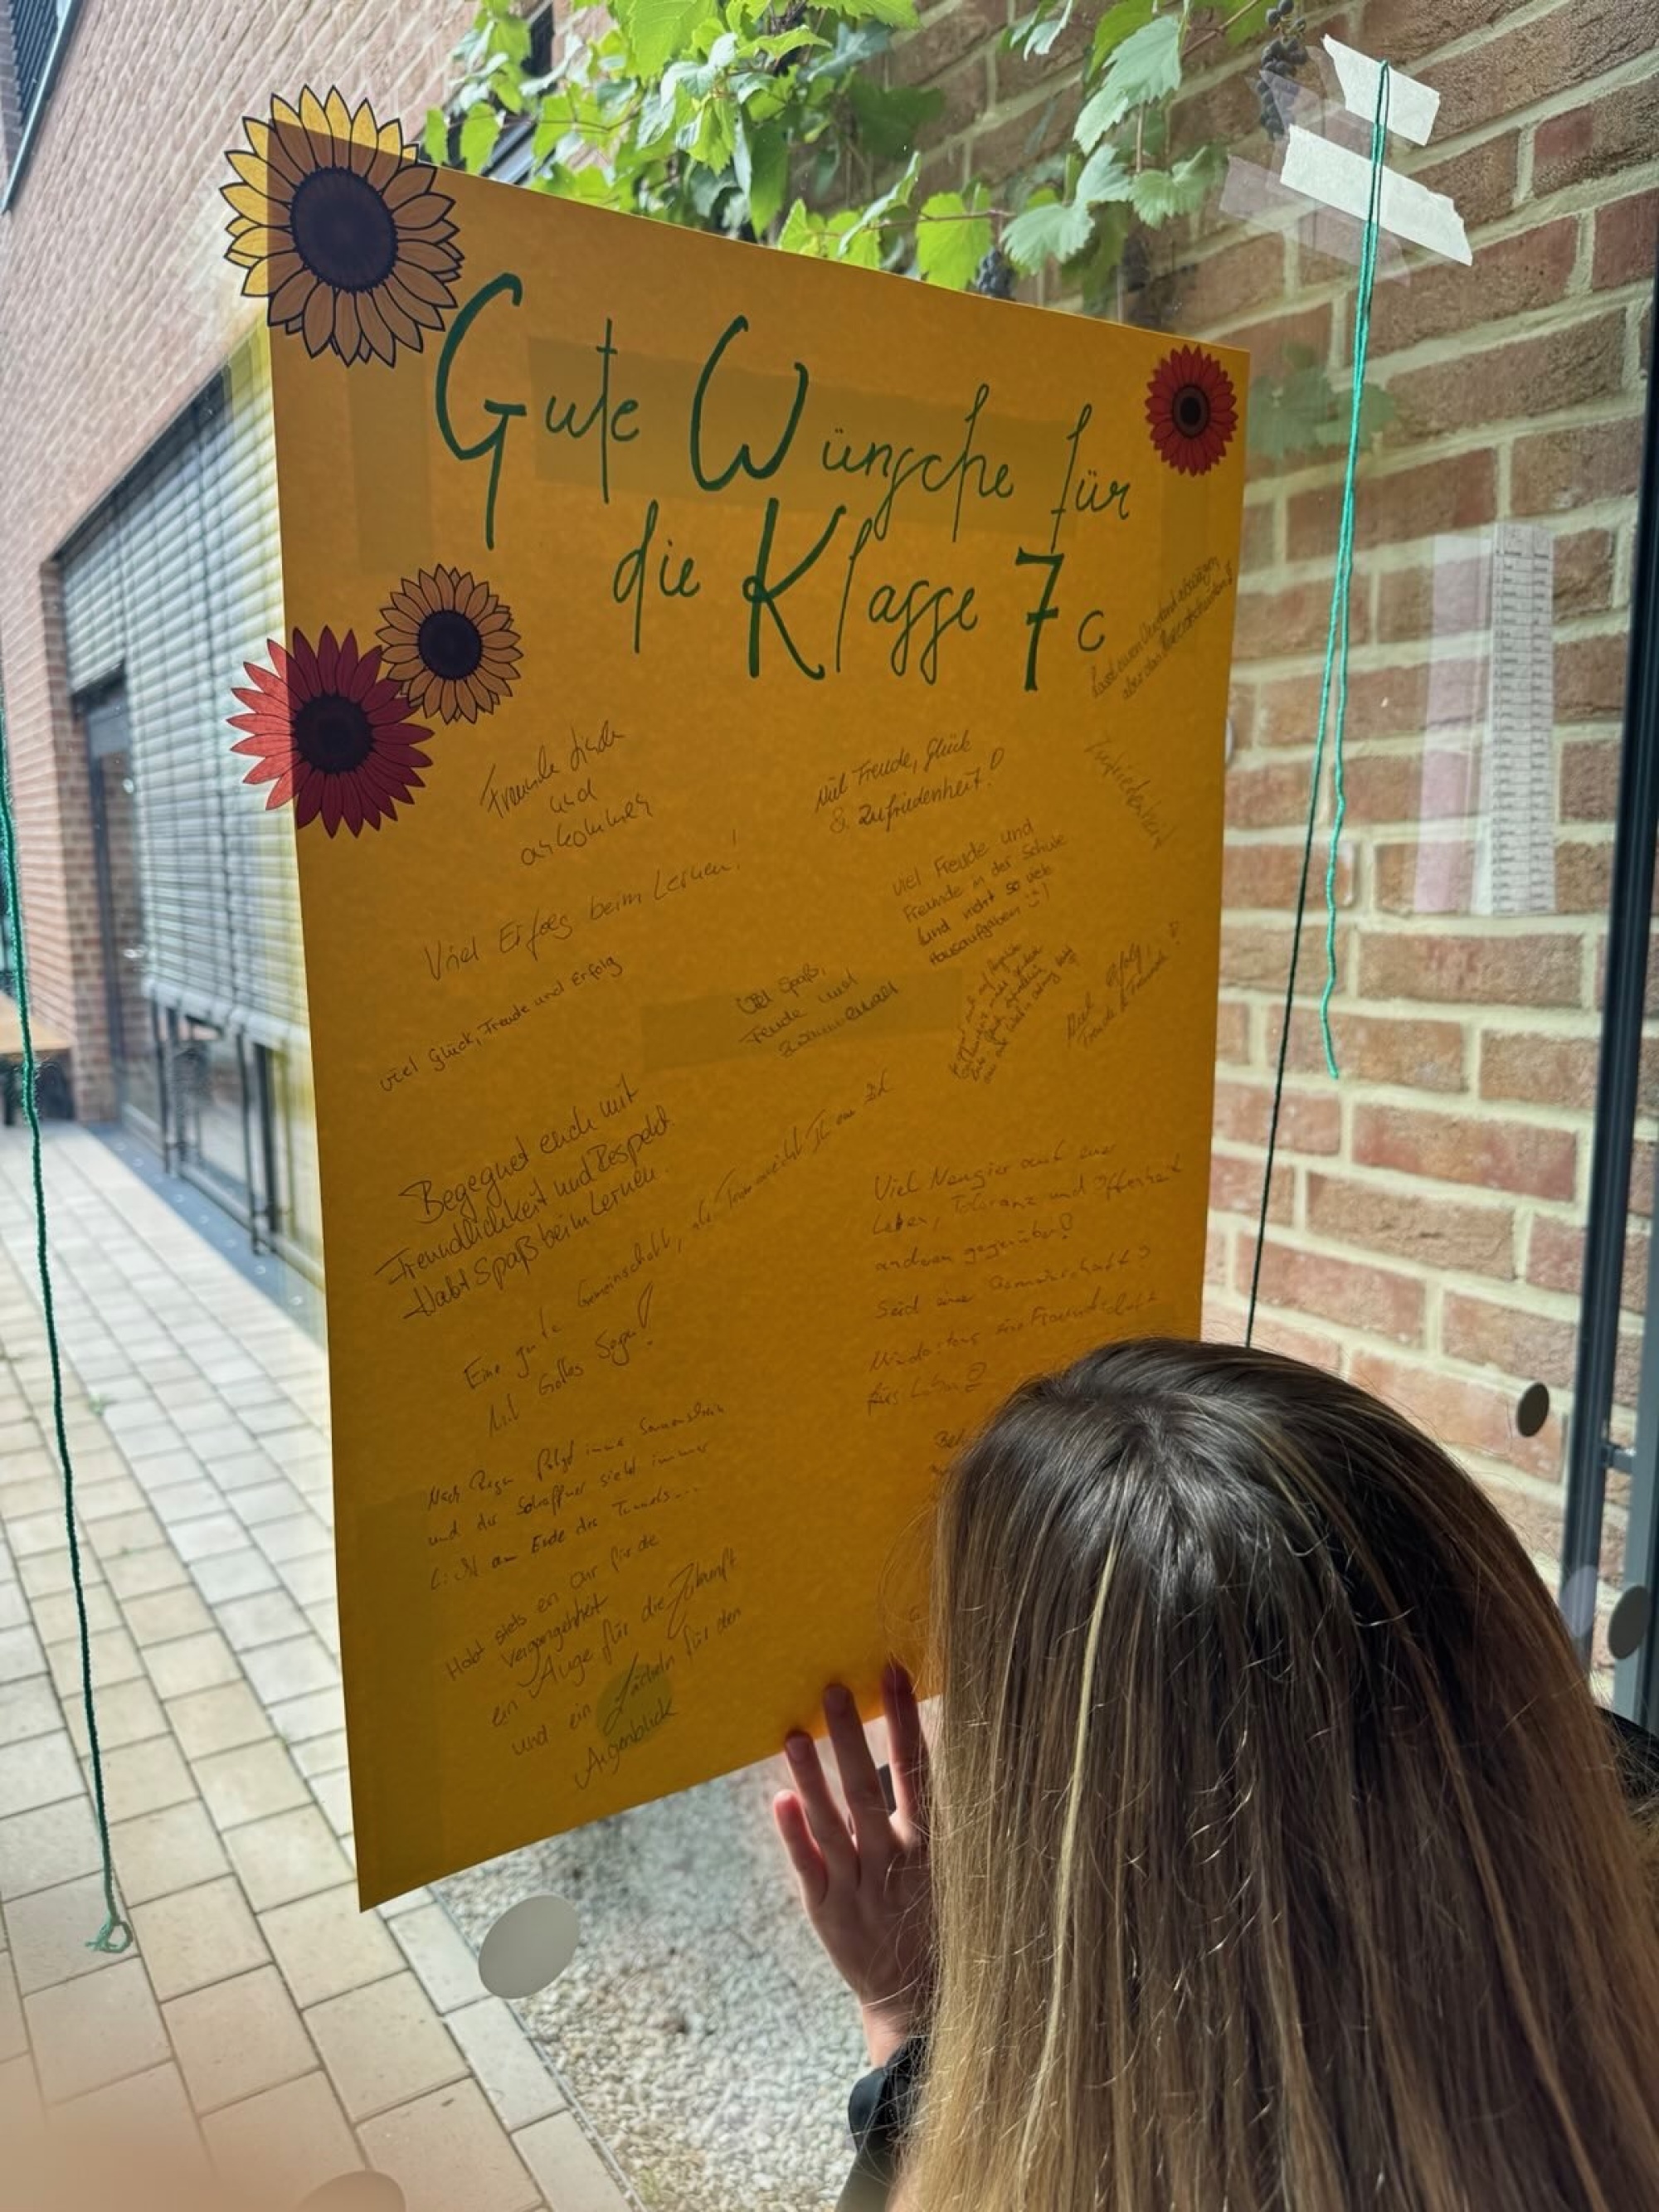 Gute Wünsche für
die Klasse 7c
Freunde finden
und
ankommen
Viel Freude, Glück
& Zufriedenheit!
Zufriedenheit
Viel Erfolg beim Lernen!
viel Freude und
Freunde in der Schule
und nicht so viele
Hausaufgaben
viel Glück, Freude und Erfolg
Viel Spaß,
Freude und
Viel Erfolg
Freude & Freunde!
Begegnet euch mit
Freundlichkeit und Respekt.
Habt Spaß beim Lernen.
Eine gute Gemeinschaft,
Mit Gottes Segen!
Viel Neugier auf euer
Leben, Toleranz und Offenheit
anderen gegenüber!
Seid eine Gemeinschaft
fürs Leben
Nach Regen folgt immer Sonnenschein
und der Schaffner sieht immer
Licht am Ende des Tunnels...
Habt stets ein Ohr für die
Vergangenheit
ein Auge für die Zukunft
und ein Lächeln für den
Augenblick